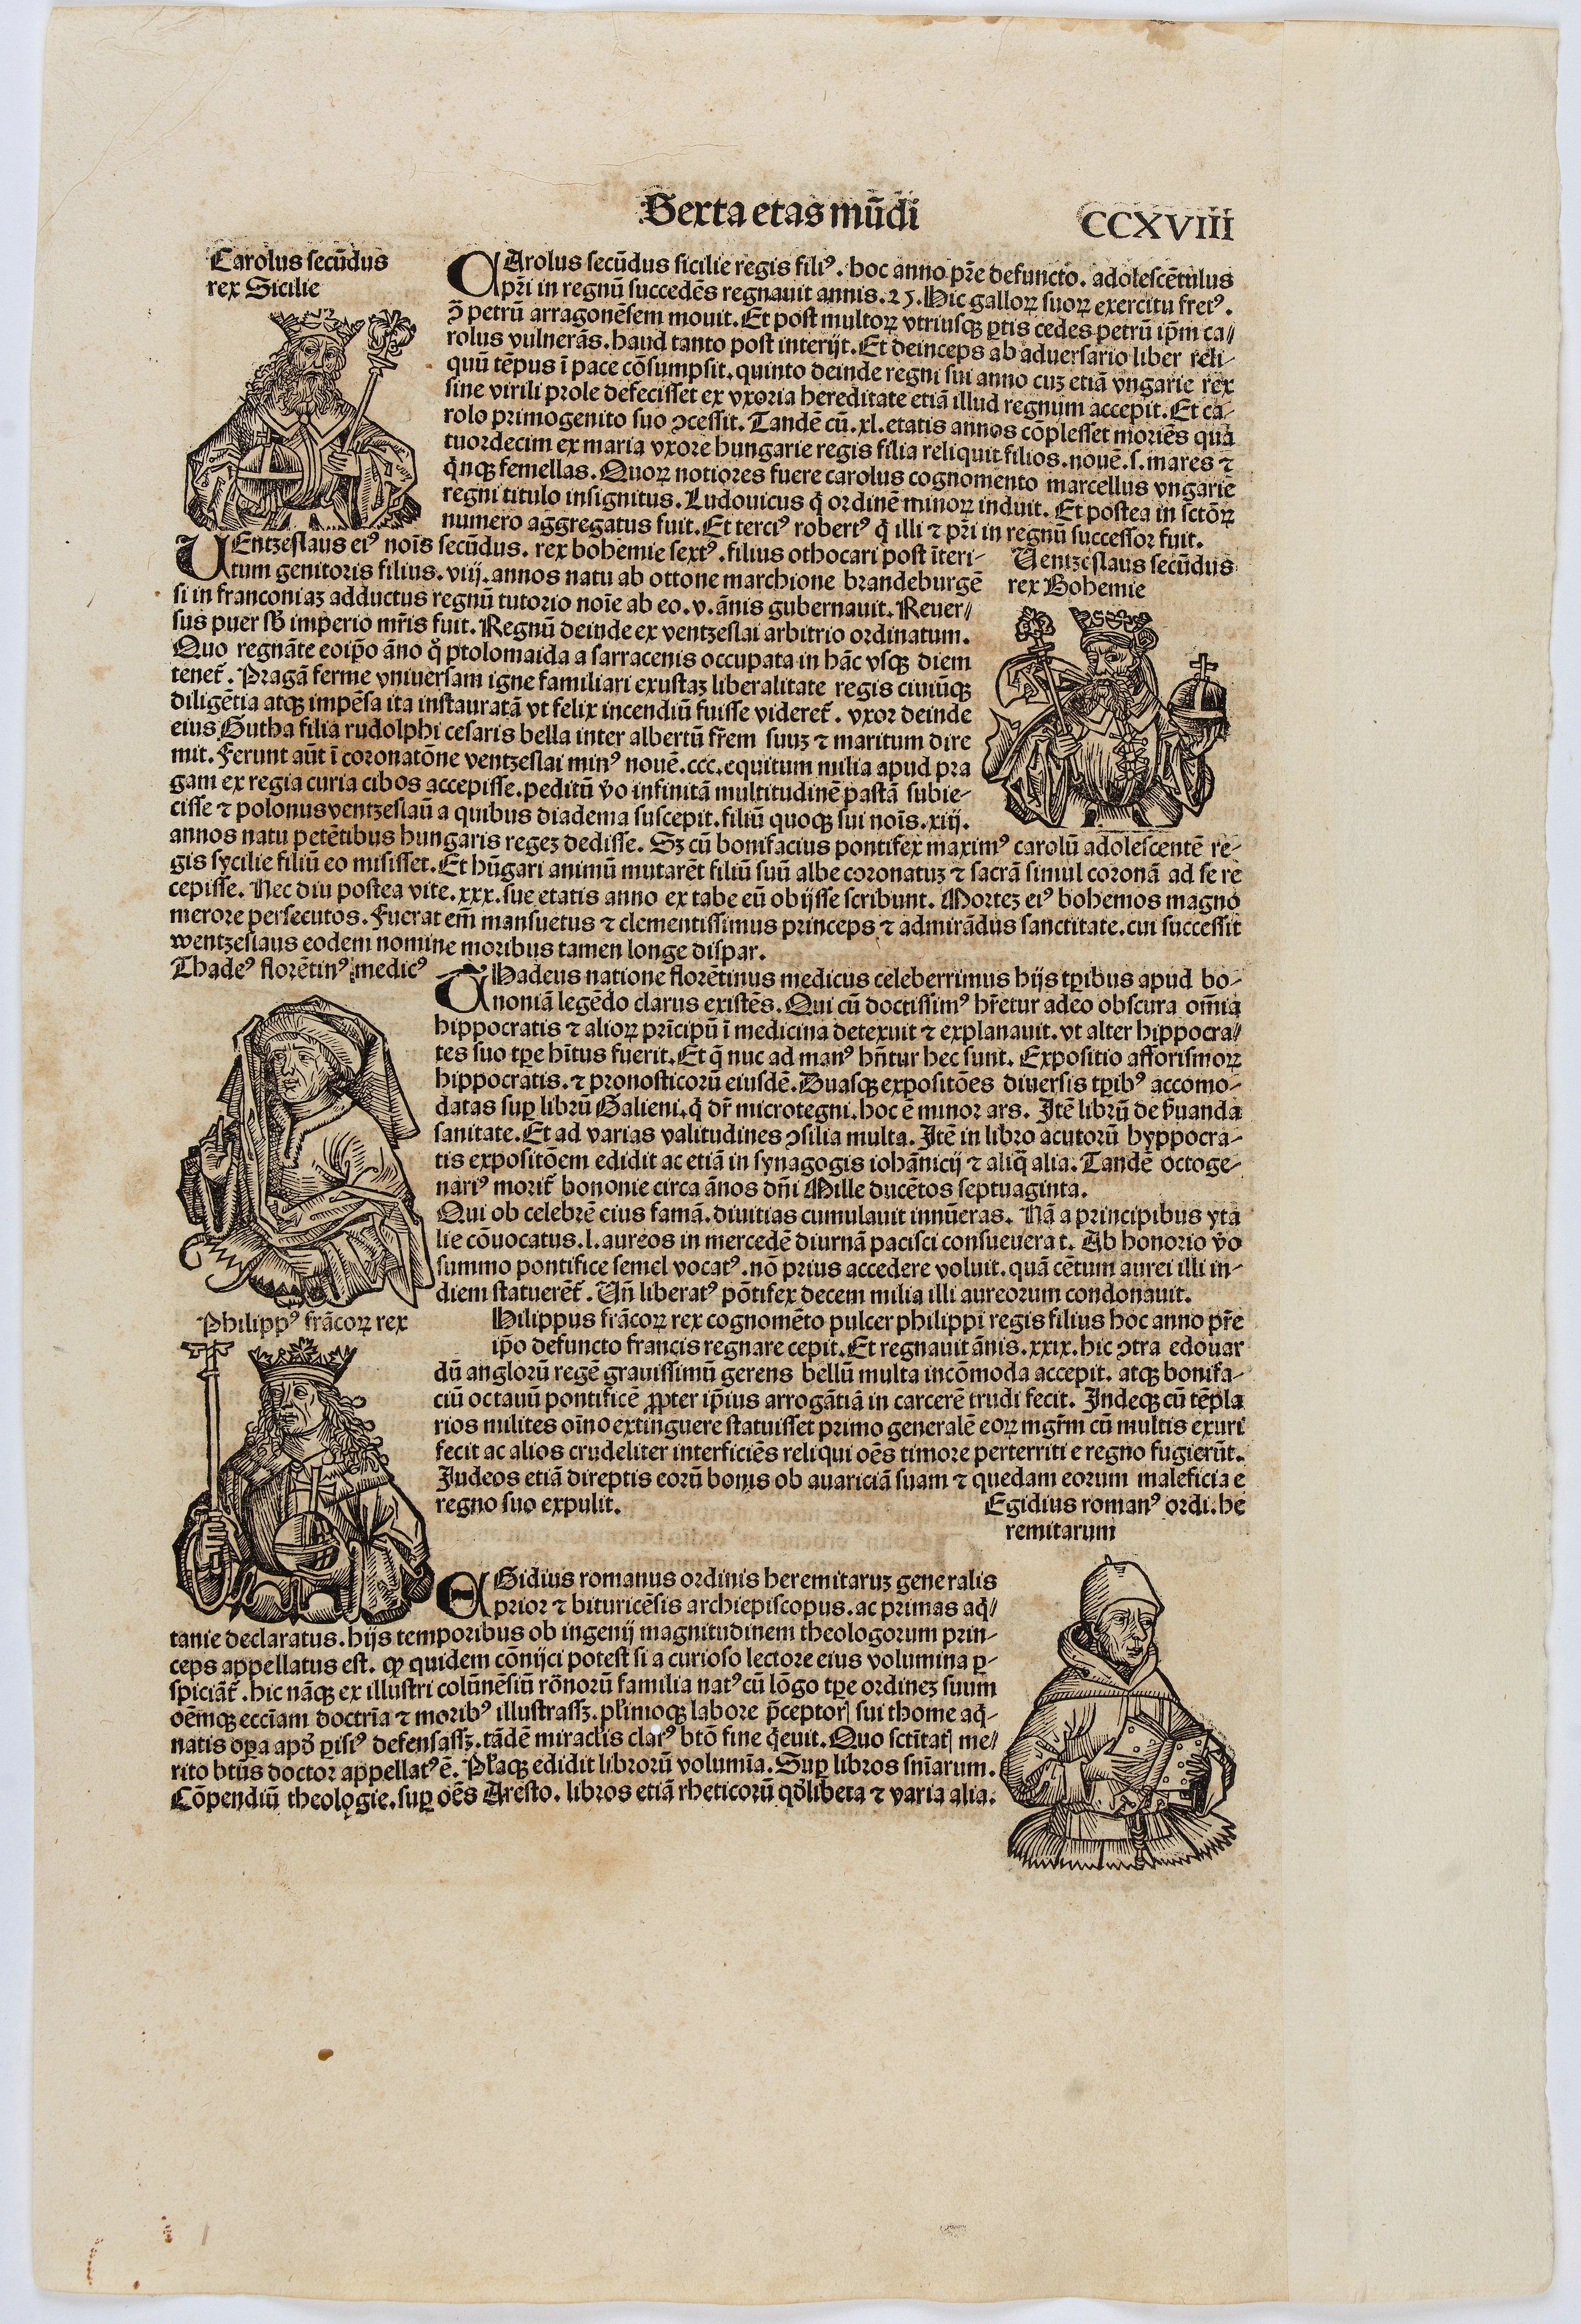 Sexta etas mūdi
CCXVIII
Carolus secūdus
rex Sicilie
CArolus secūdus sicilie regis filiꝰ. hoc anno pr̄e defuncto. adolescētulus
pr̄i in regnū succedēs regnauit annis. 25. Hic galloꝝ suoꝝ exercitu fretꝰ.
ꝯ̄ petrū arragonēsem mouit. Et post multoꝝ vtriusqꝫ ꝑtis cedes petrū ip̄m ca/
rolus vulnerās. haud tanto post interijt. Et deinceps ab aduersario liber reli-
quū tēpus ī pace cōsumpsit. quinto deinde regni sui anno cuꝫ etiā vngarie rex
sine virili prole defecisset ex vxoria hereditate etiā illud regnum accepit. Et ca-
rolo primogenito suo ꝯcessit. Tandē cū. xl. etatis annos cōplesset moriēs qua
tuordecim ex maria vxore hungarie regis filia reliquit filios. nouē. s. mares ⁊
q̇nqꝫ femellas. Quoꝝ notiores fuere carolus cognomento marcellus vngarie
regni titulo insignitus. Ludouicus q̇ ordinē minoꝝ induit. Et postea in sctōꝝ
numero aggregatus fuit. Et terciꝰ robertꝰ q̇ illi ⁊ pr̄i in regnū successor fuit.
Uentzeslaus secūdus
rex Bohemie
UEntzeslaus eiꝰ nōis secūdus. rex bohemie sextꝰ. filius othocari post īteri-
tum genitoris filius. viij. annos natu ab ottone marchione brandeburgē
si in franconiaꝫ adductus regnū tutorio nōie ab eo. v. ānis gubernauit. Reuer/
sus puer sb̄ imperio mr̄is fuit. Regnū deinde ex ventzeslai arbitrio ordinatum.
Quo regnāte eoip̄o āno q̇ ptolomaida a sarracenis occupata in hāc vsqꝫ diem
tenet̄. Pragā ferme vniuersam igne familiari exustaꝫ liberalitate regis ciuiūqꝫ
diligētia atqꝫ impēsa ita instauratā vt felix incendiū fuisse videret̄. vxor deinde
eius Gutha filia rudolphi cesaris bella inter albertū fr̄em suuꝫ ⁊ maritum dire
mit. Ferunt aūt ī coronatōne ventzeslai minꝰ nouē. ccc. equitum milia apud pra
gam ex regia curia cibos accepisse. peditū v̄o infinitā multitudinē pastā subie-
cisse ⁊ polonus ventzeslaū a quibus diadema suscepit. filiū quoqꝫ sui nōis. xiij.
annos natu petētibus hungaris regeꝫ dedisse. Sꝫ cū bonifacius pontifex maximꝰ carolū adolescentē re-
gis sycilie filiū eo misisset. Et hūgari animū mutarēt filiū suū albe coronatuꝫ ⁊ sacrā simul coronā ad se re
cepisse. Nec diu postea vite. xxx. sue etatis anno ex tabe eū obijsse scribunt. Morteꝫ eiꝰ bohemos magno
merore persecutos. Fuerat em̄ mansuetus ⁊ clementissimus princeps ⁊ admirādus sanctitate. cui successit
wentzeslaus eodem nomine moribus tamen longe dispar.
Thadeꝰ florētinꝰ medicꝰ
THadeus natione florētinus medicus celeberrimus hijs tꝑibus apud bo-
noniā legēdo clarus existēs. Qui cū doctissimꝰ hr̄etur adeo obscura om̄ia
hippocratis ⁊ alioꝝ prīcipū ī medicina detexuit ⁊ explanauit. vt alter hippocra/
tes suo tꝑe hītus fuerit. Et q̄ nuc ad manꝰ hn̄tur hec sunt. Expositio afforismoꝝ
hippocratis. ⁊ pronosticorū eiusdē. Duasqꝫ expositōes diuersis tꝑibꝰ accomo-
datas suꝑ librū Galieni. q̇ dr̄ microtegni. hoc ē minor ars. Itē librū de p̄uanda
sanitate. Et ad varias valitudines ꝯsilia multa. Itē in libro acutorū hyppocra-
tis expositōem edidit ac etiā in synagogis iohānicij ⁊ aliq̄ alia. Tandē octoge-
nariꝰ morit̄ bononie circa ānos dn̄i Mille ducētos septuaginta.
Qui ob celebrē eius famā. diuitias cumulauit innūeras. Nā a principibus yta
lie cōuocatus. l. aureos in mercedē diurnā pacisci consueuera t. Ab honorio v̄o
summo pontifice semel vocatꝰ. nō prius accedere voluit. quā cētum aurei illi in-
diem statuerēt̄. Un̄ liberatꝰ pōtifex decem milia illi aureorum condonauit.
Philippꝰ frācoꝝ rex
Hilippus frācoꝝ rex cognomēto pulcer philippi regis filius hoc anno pr̄e
ip̄o defuncto francis regnare cepit. Et regnauit ānis. xxix. hic ꝯtra edouar
dū anglorū regē grauissimū gerens bellū multa incōmoda accepit. atqꝫ bonifa-
ciū octauū pontificē ꝓpter ip̄ius arrogātiā in carcerē trudi fecit. Indeqꝫ cū tēpla
rios milites oīno extinguere statuisset primo generalē eoꝝ mgr̄m cū multis exuri
fecit ac alios crudeliter interficiēs reliqui oēs timore perterriti e regno fugierūt.
Judeos etiā direptis eorū bonis ob auariciā suam ⁊ quedam eorum maleficia e
regno suo expulit.
Egidius romanꝰ ordi. he
remitarum
EGidius romanus ordinis heremitaruꝫ generalis
prior ⁊ bituricēsis archiepiscopus. ac primas aq̇/
tanie declaratus. hijs temporibus ob ingenij magnitudinem theologorum prin-
ceps appellatus est. qp̄ quidem cōnijci potest si a curioso lectore eius volumina ꝑ-
spiciāt̄. hic nāqꝫ ex illustri colūnēsiū rōnorū familia natꝰ cū lōgo tꝑe ordineꝫ suum
oēmqꝫ eccīam doctrīa ⁊ moribꝰ illustrassꝫ. pl̄imoqꝫ labore p̄ceptorꝭ sui thome aq̇-
natis oꝑa apd̄ ꝑisiꝰ defensassꝫ. tādē miraclis clarꝰ btō fine q̇euit. Quo sctītatꝭ me/
rito btūs doctor appellatꝰ ē. Pl̄aqꝫ edidit librorū volumīa. Suꝑ libros snīarum.
Cōpendiū theologie. suꝑ oēs Aresto. libros etiā rheticorū qd̄libeta ⁊ varia alia.